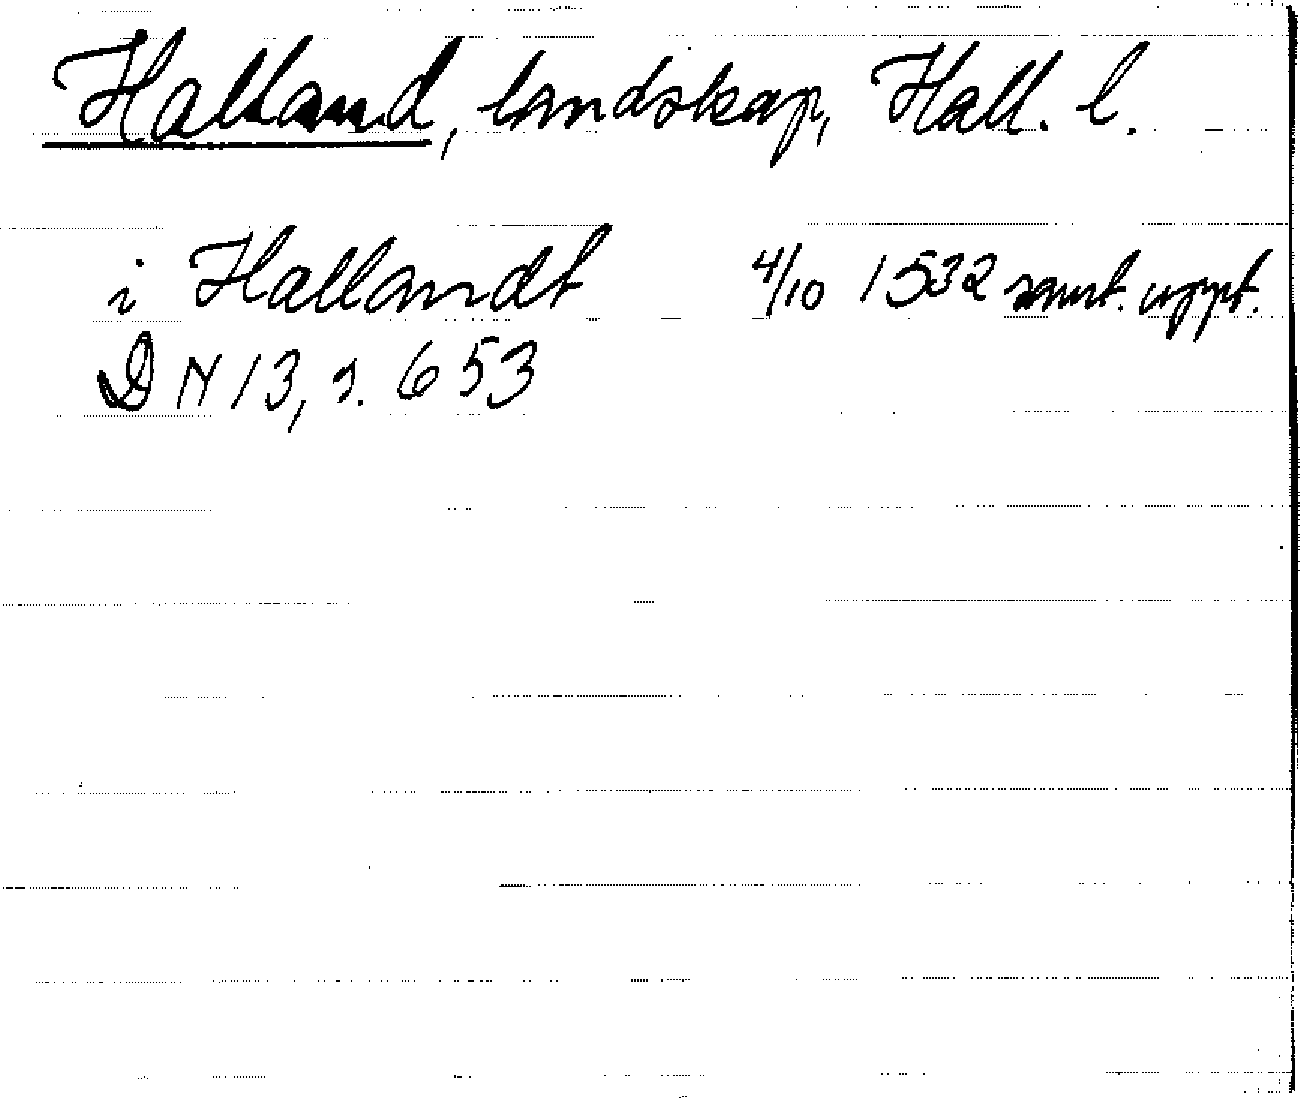 Halland, landskap, Hall. l.
i Hallandt 4/10 1532 samt. uppt.
DN 13, s. 653